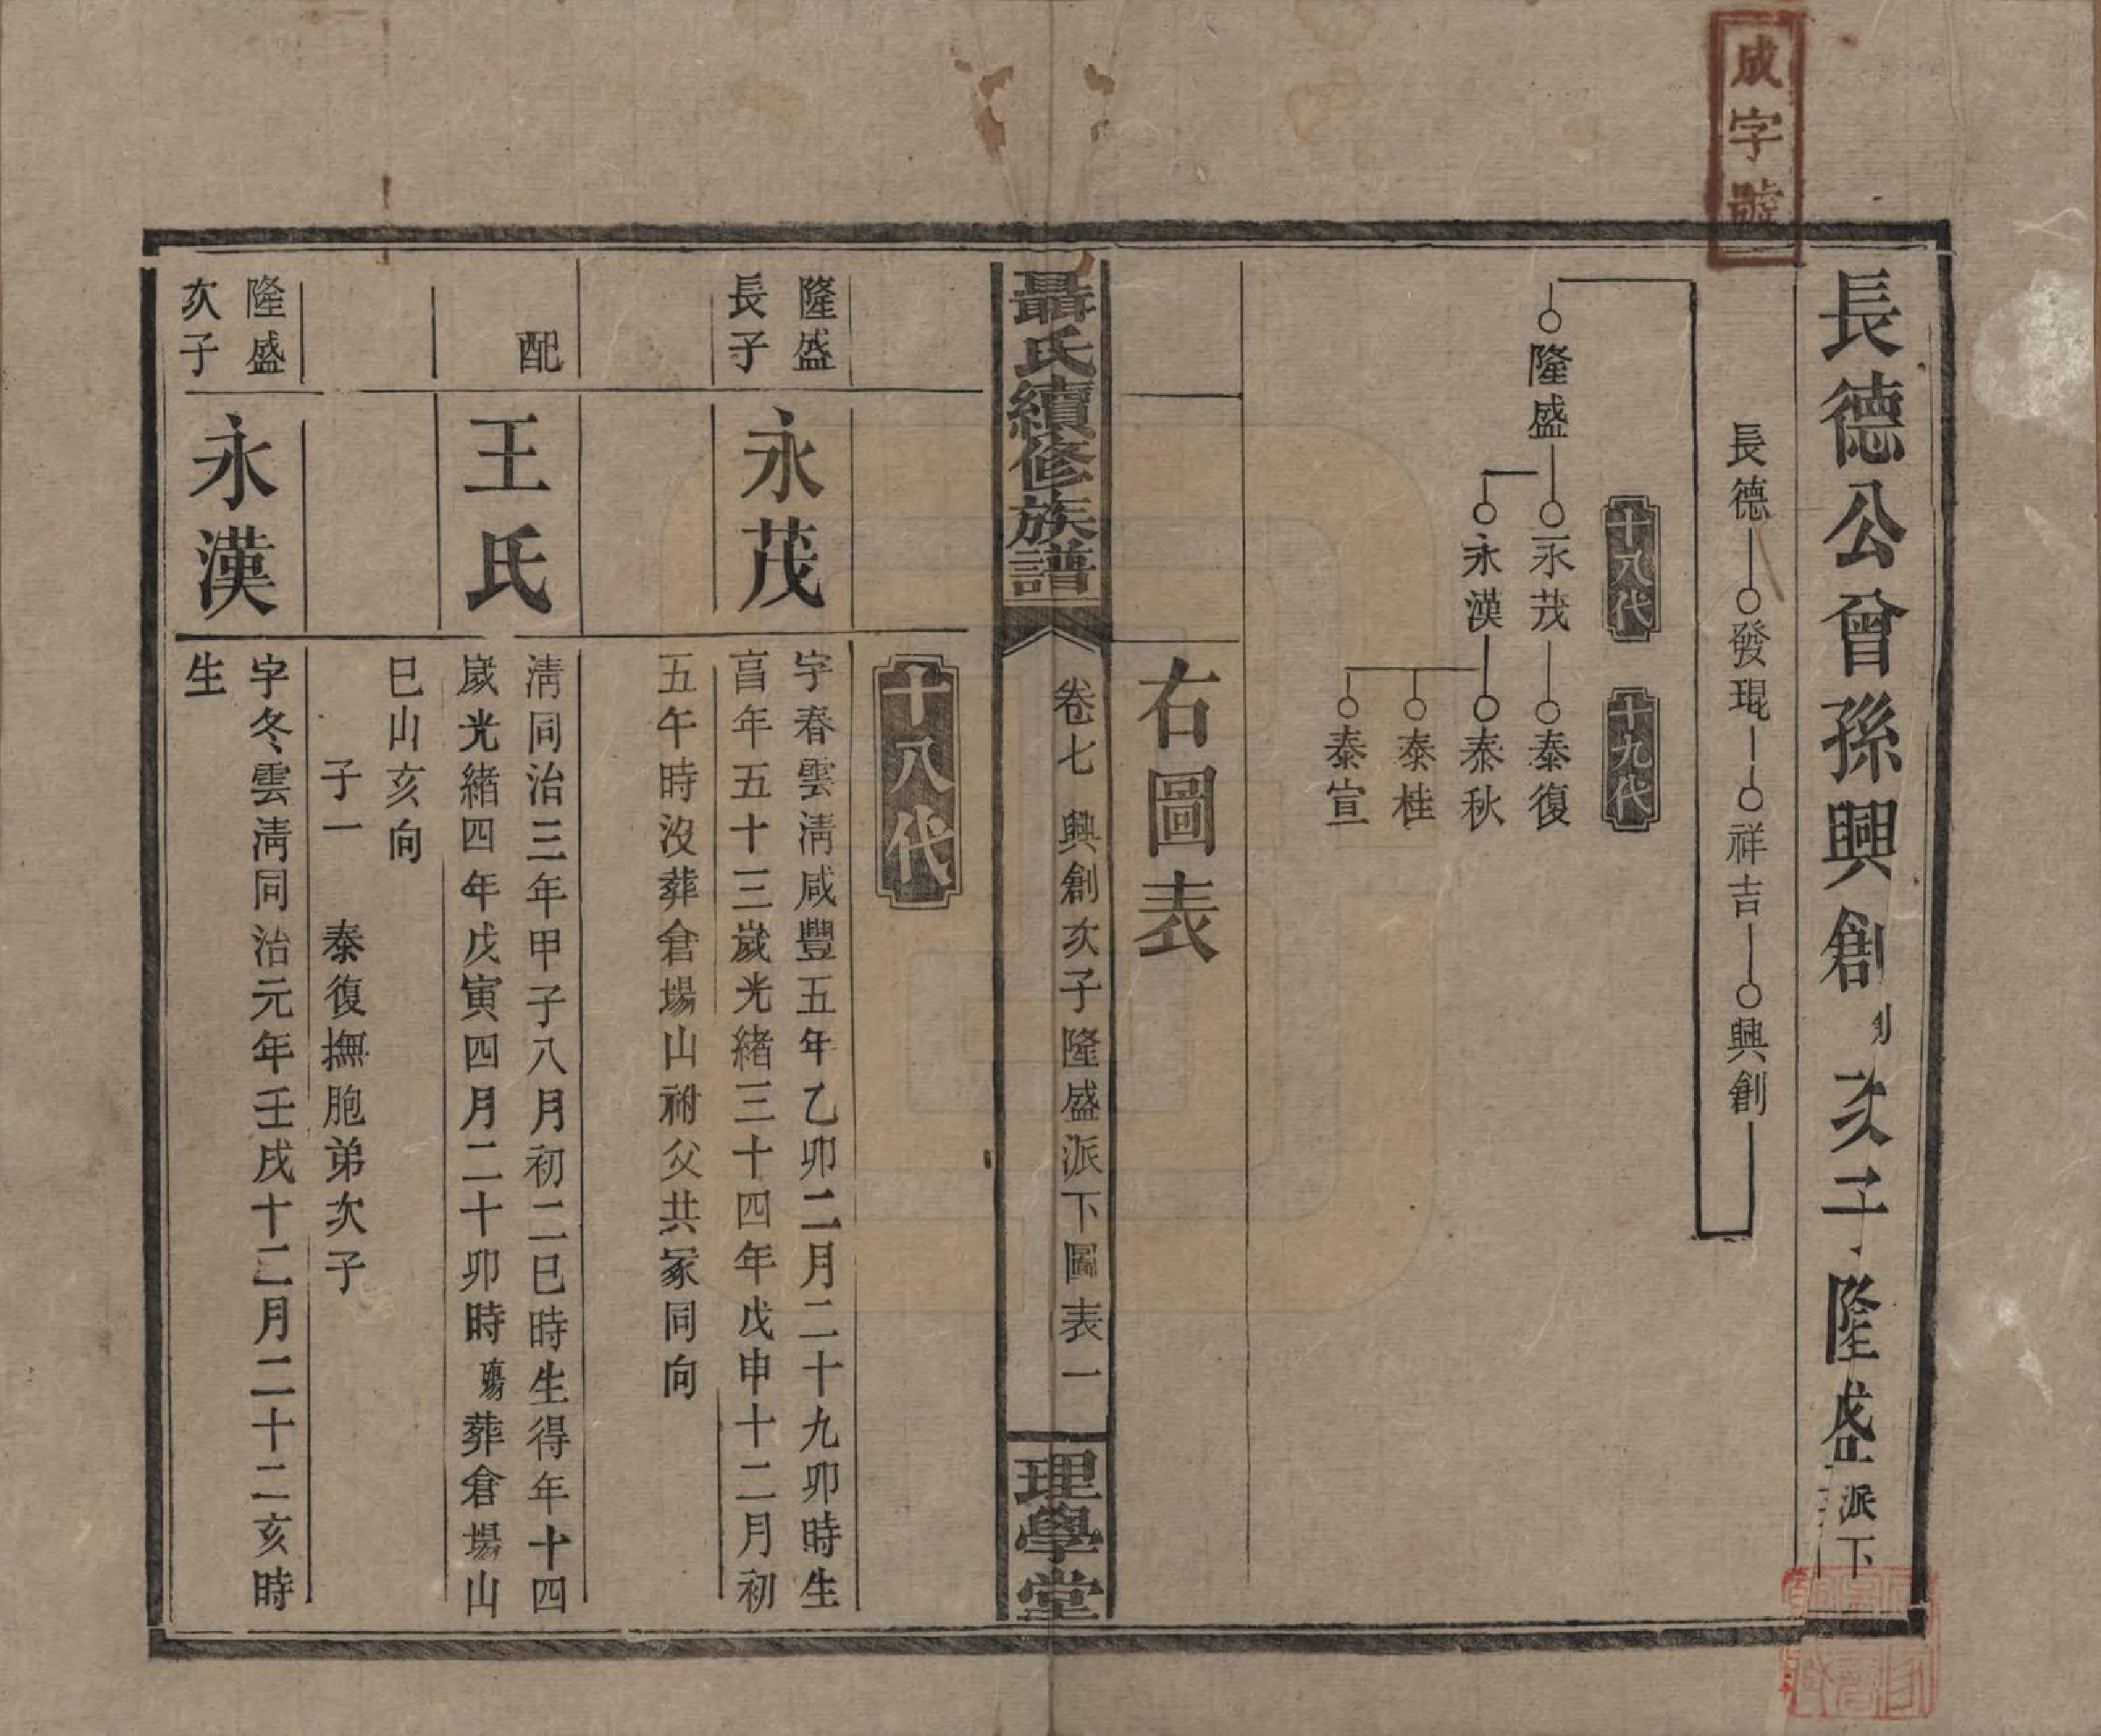 成字號
長德公曾孫興創次子隆盛派下
長德
發琨
祥吉
興創
十八代
十九代
隆盛
永茂
泰復
永漢
泰秋
泰桂
泰宣
右圖表
聶氏續修族譜
卷七 興創次子隆盛派下圖表一
理學堂
十八代
隆盛
長子
永茂
字春雲淸咸豐五年乙卯二月二十九卯時生
享年五十三歲光緖三十四年戊申十二月初
五午時沒葬倉場山祔父共冢同向
配
王氏
淸同治三年甲子八月初二巳時生得年十四
歲光緖四年戊寅四月二十卯時殤葬倉場山
巳山亥向
子一 泰復撫胞弟次子
隆盛
次子
永漢
字冬雲淸同治元年壬戌十二月二十二亥時
生